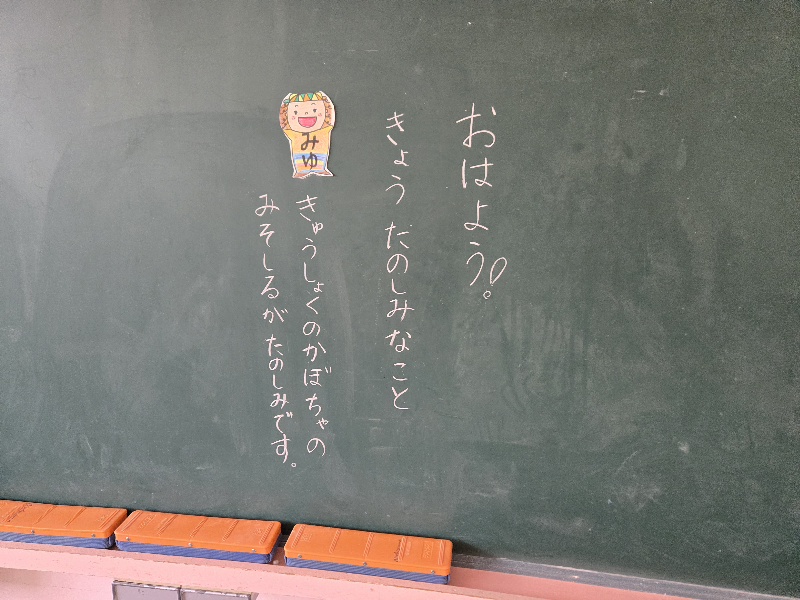 おはよう!
きょう だのしみなこと
みゆ
きゅうしょくのかぼちゃの
みそしるが たのしみです。